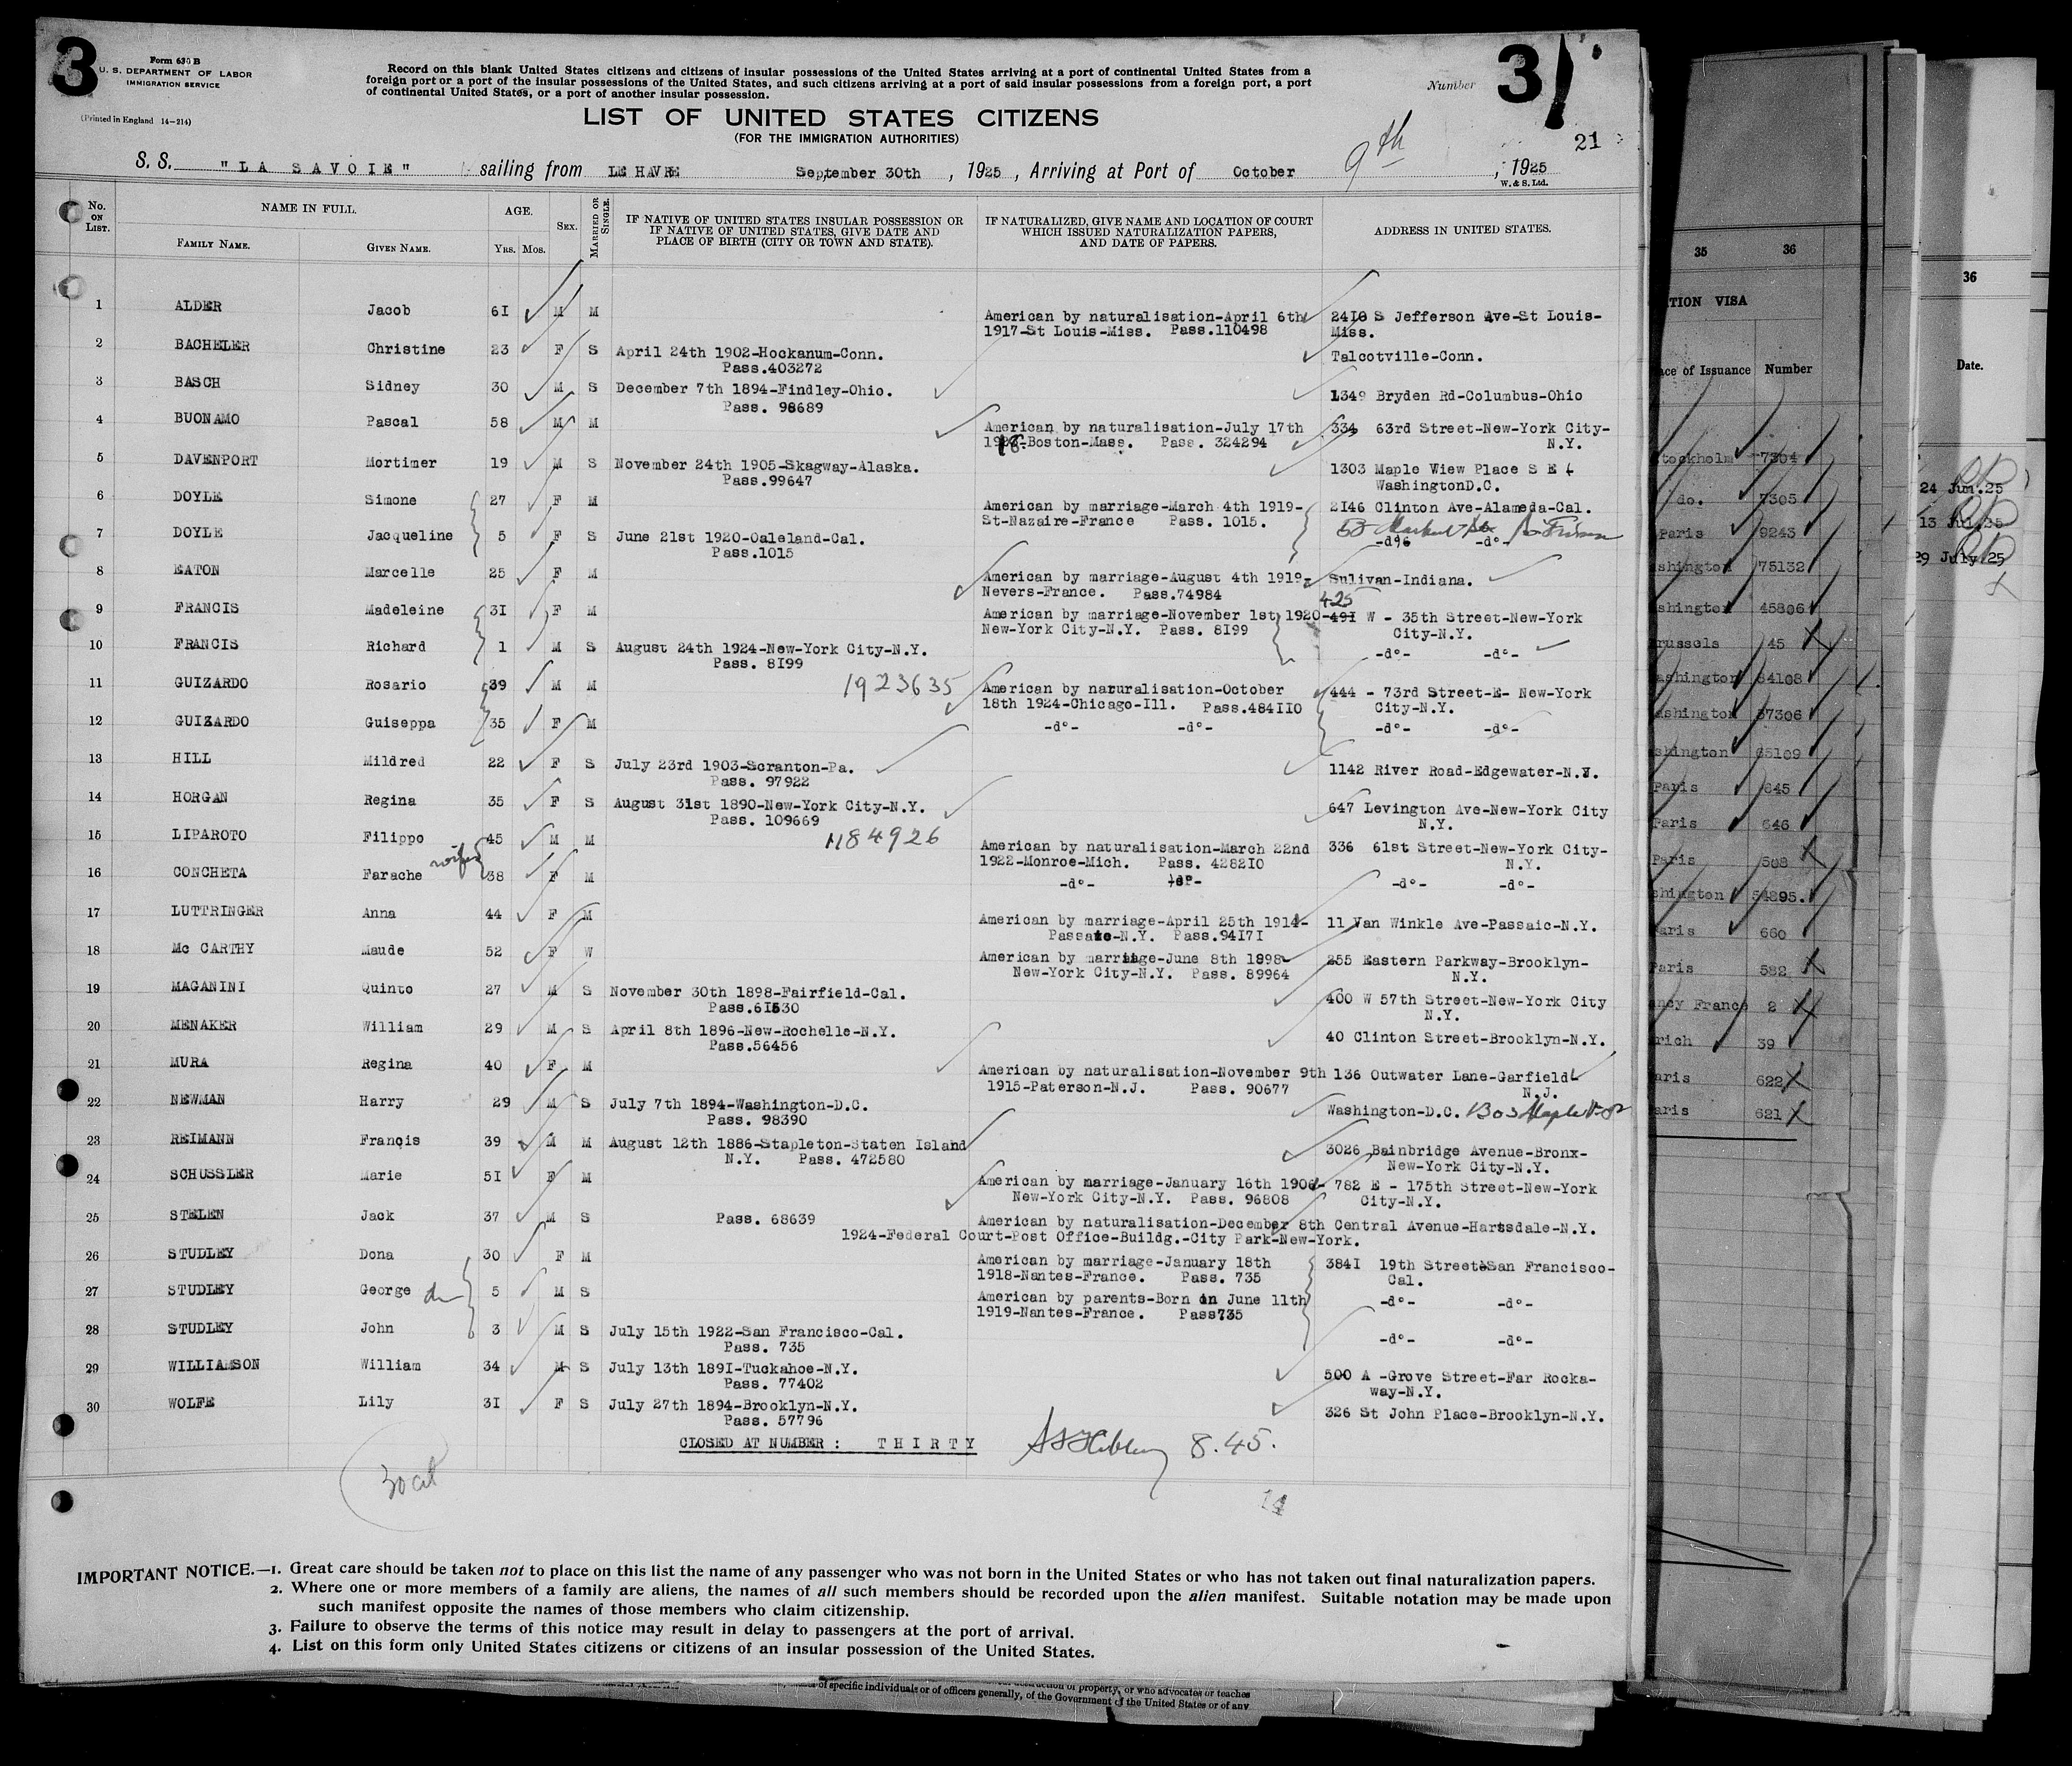 3
Form 630 B
U. S. DEPARTMENT OF LABOR
IMMIGRATION SERVICE
(Printed in England 14-214)
Record on this blank United States citizens and citizens of insular possessions of the United States arriving at a port of continental United States from a
foreign port or a port of the insular possessions of the United States, and such citizens arriving at a port of said insular possessions from a foreign port, a port
of continental United States, or a port of another insular possession.
Number 3
21
LIST OF UNITED STATES CITIZENS
(FOR THE IMMIGRATION AUTHORITIES)
S. S. "LA SAVOIE" sailing from LE HAVRE September 30th, 1925, Arriving at Port of October 9th, 1925
W. & S. Ltd.
No. ON LIST. NAME IN FULL. AGE. SEX. MARRIED OR SINGLE. IF NATIVE OF UNITED STATES INSULAR POSSESSION OR IF NATIVE OF UNITED STATES, GIVE DATE AND PLACE OF BIRTH (CITY OR TOWN AND STATE). IF NATURALIZED, GIVE NAME AND LOCATION OF COURT WHICH ISSUED NATURALIZATION PAPERS, AND DATE OF PAPERS. ADDRESS IN UNITED STATES.
FAMILY NAME. GIVEN NAME. YRS. MOS.
1 ALDER Jacob 61 M M American by naturalisation-April 6th 2418 S Jefferson Ave-St Louis-
1917-St Louis-Miss. Pass.110498 Miss.
2 BACHELER Christine 23 F S April 24th 1902-Hockanum-Conn. Talcotville-Conn.
Pass.403272
3 BASCH Sidney 30 M S December 7th 1894-Findley-Ohio. 1349 Bryden Rd-Columbus-Ohio
Pass. 98689
4 BUONAMO Pascal 58 M M American by naturalisation-July 17th 334 63rd Street-New-York City-
18-Boston-Mass. Pass. 324294 N.Y.
5 DAVENPORT Mortimer 19 M S November 24th 1905-Skagway-Alaska. 1303 Maple Wiew Place S E
Pass.99647 WashingtonD.C.
6 DOYLE Simone 27 F M American by marriage-March 4th 1919- 2146 Clinton Ave-Alameda-Cal.
St-Nazaire-France Pass. 1015.
7 DOYLE Jacqueline 5 F S June 21st 1920-Oaleland-Cal. -do- -do-
Pass.1015
8 EATON Marcelle 25 F M American by marriage-August 4th 1919- Sulivan-Indiana.
Nevers-France. Pass.74984
9 FRANCIS Madeleine 31 F M American by marriage-November 1st 1920- 425 491 W - 35th Street-New-York
New-York City-N.Y. Pass. 8199 City-N.Y.
10 FRANCIS Richard 1 M S August 24th 1924-New-York City-N.Y. -do- -do-
Pass. 8199
11 GUIZARDO Rosario 39 M M 1923635 American by naruralisation-October 444 - 73rd Street-E- New-York
18th 1924-Chicago-Ill. Pass.484110 City-N.Y.
12 GUIZARDO Guiseppa 35 F M -do- -do- -do- -do-
13 HILL Mildred 22 F S July 23rd 1903-Scranton-Pa. 1142 River Road-Edgewater-N.J.
Pass. 97922
14 HORGAN Regina 35 F S August 31st 1890-New-York City-N.Y. 647 Levington Ave-New-York City
Pass. 109669 N.Y.
15 LIPAROTO Filippo 45 M M 1184926 American by naturalisation-March 22nd 336 61st Street-New-York City-
1922-Monroe-Mich. Pass. 428210 N.Y.
16 CONCHETA Farache wife 38 F M -do- -do- -do- -do-
17 LUTTRINGER Anna 44 F M American by marriage-April 25th 1914- 11 Van Winkle Ave-Passaic-N.Y.
Passaic-N.Y. Pass.94171
18 Mc CARTHY Maude 52 F W American by marriage-June 8th 1898- 255 Eastern Parkway-Brooklyn-
New-York City-N.Y. Pass. 89964 N.Y.
19 MAGANINI Quinto 27 M S November 30th 1898-Fairfield-Cal. 400 W 57th Street-New-York City
Pass.61530 N.Y.
20 MENAKER William 29 M S April 8th 1896-New-Rochelle-N.Y. 40 Clinton Street-Brooklyn-N.Y.
Pass.56456
21 MURA Regina 40 F M American by naturalisation-November 9th 136 Outwater Lane-Garfield-
1915-Paterson-N.J. Pass. 90677 N.J.
22 NEWMAN Harry 29 M S July 7th 1894-Washington-D.C. Washington-D.C.
Pass. 98390
23 REIMANN Francis 39 M M August 12th 1886-Stapleton-Staten Island 3026 Bainbridge Avenue-Bronx-
N.Y. Pass. 472580 New-York City-N.Y.
24 SCHUSSLER Marie 51 F M American by marriage-January 16th 1906- 782 E - 175th Street-New-York
New-York City-N.Y. Pass. 96808 City-N.Y.
25 STELEN Jack 37 M S Pass. 68639 American by naturalisation-December 8th Central Avenue-Hartsdale-N.Y.
1924-Federal Court-Post Office-Buildg.-City Park-New-York.
26 STUDLEY Dona 30 F M American by marriage-January 18th 3841 19th Street-San Francisco-
1918-Nantes-France. Pass. 735 Cal.
27 STUDLEY George 5 M S American by parents-Born on June 11th -do- -do-
1919-Nantes-France. Pass735
28 STUDLEY John 3 M S July 15th 1922-San Francisco-Cal. -do- -do-
Pass. 735
29 WILLIAMSON William 34 M S July 13th 1891-Tuckahoe-N.Y. 500 A -Grove Street-Far Rocka-
Pass. 77402 way-N.Y.
30 WOLFE Lily 31 F S July 27th 1894-Brooklyn-N.Y. 326 St John Place-Brooklyn-N.Y.
Pass. 57796
CLOSED AT NUMBER : THIRTY 8.45.
30 cit
14
IMPORTANT NOTICE.—1. Great care should be taken not to place on this list the name of any passenger who was not born in the United States or who has not taken out final naturalization papers.
2. Where one or more members of a family are aliens, the names of all such members should be recorded upon the alien manifest. Suitable notation may be made upon
such manifest opposite the names of those members who claim citizenship.
3. Failure to observe the terms of this notice may result in delay to passengers at the port of arrival.
4. List on this form only United States citizens or citizens of an insular possession of the United States.
of specific individuals or of officers generally, of the Government of the United States or of any
property, or who advocates or teaches
35 36
TION VISA
ace of Issuance Number
tockholm 7304
do. 7305
Paris 9243
shington 75132
shington 45806
russels 45
ashington 64108
ashington 37306
shington 65109
Paris 645
Paris 646
Paris 568
shington 54895.
aris 660
Paris 582
ancy France 2
rich 39
aris 622
aris 621
36
Date.
24 Jun.25
13 Jul.25
29 July.25